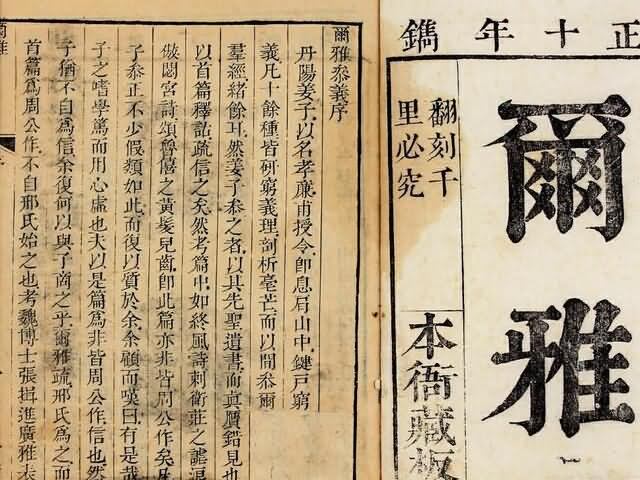 正十年鐫
爾雅
翻刻千
里必究
本衙藏板
爾雅叅義序
丹陽姜子以名孝廉甫授令卽息肩山中鍵戸窮
義凡十餘種皆研窮義理剖析毫芒而以閒叅爾
羣經緒餘耳然姜子叅之者以其先聖遺書而真贋錯見也
以首篇釋詁疏信之矣然考篇中如終風詩刺衛莊之謔浪
倣閟宮詩頌魯僖之黃髮兒齒卽此篇亦非皆周公作矣
子叅正不少假類如此而復以質於余余顧而嘆曰有是哉
子之嗜學篤而用心虛也夫以是篇爲非皆周公作信也然
子猶不自爲信余復何以與子商之乎爾雅疏邢氏爲之而
首篇爲周公作不自邢氏始之也考魏博士張揖進廣雅表